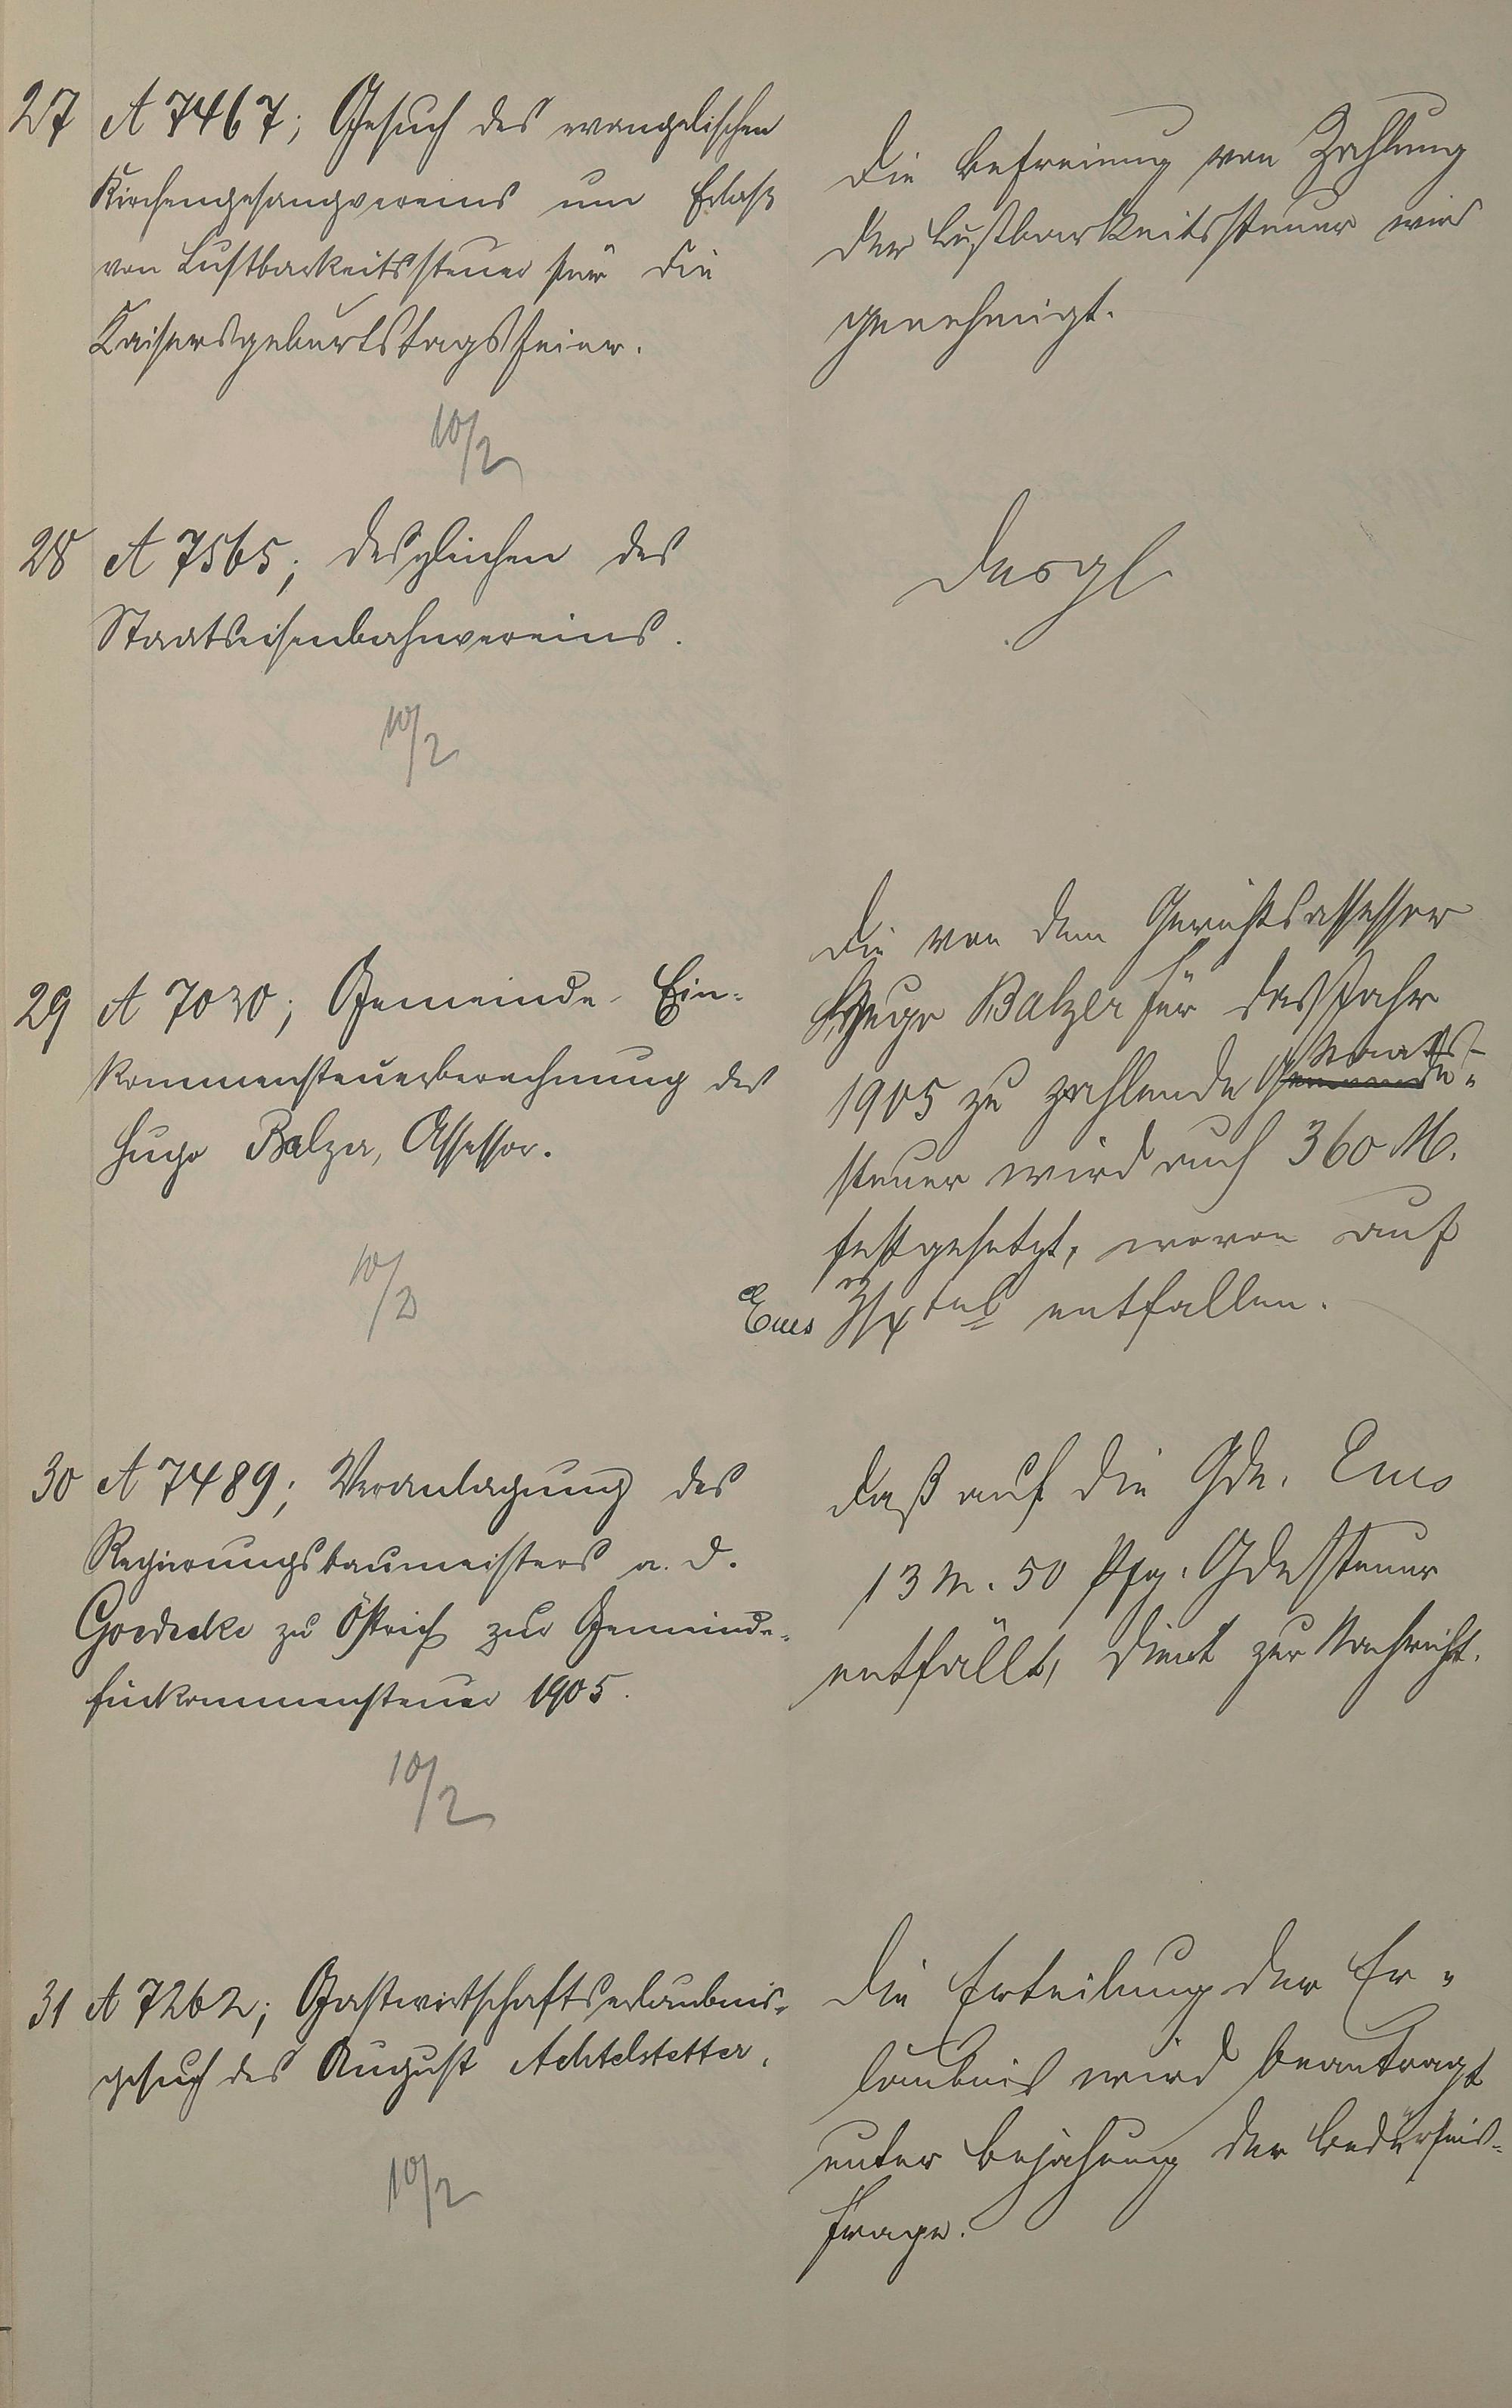 27 A 7467; Gesuch des evangelischen
Kirchengesangvereins um Erlaß
von Lustbarkeitssteuer für die
Kaisersgeburtstagsfeier.
10/2
Die Befreiung von Zahlung
der Lustbarkeitssteuer wird
genehmigt.
28 A 7565; desgleichen des
Staatseisenbahnvereins.
10/2
Desgl
29 A 7030; Gemeinde-Ein-
kommensteuerberechnung des
Hugo Balzer, Assessor.
10/2
Die von dem Gerichtsassessor
Hugo Balzer für das Jahr
1905 zu zahlende Gemeinde-
Staats-
steuer wird auf 360 M.
festgesetzt, wovon auf
Ems entfallen.
30 A 7489; Veranlagung des
Regierungsbaumeisters a. D.
Goedecke zu Östrich zur Gemeinde-
einkommensteuer 1905.
10/2
Daß auf die Gde. Ems
13 M. 50 Pfg. Gdesteuer
entfällt, dient zur Nachricht.
31 A 7262; Gastwirtschaftserlaubnis-
gesuch des August Achtelstetter.
10/2
Die Erteilung der Er-
laubnis wird beantragt
unter Bejahung der Bedürfnis-
frage.